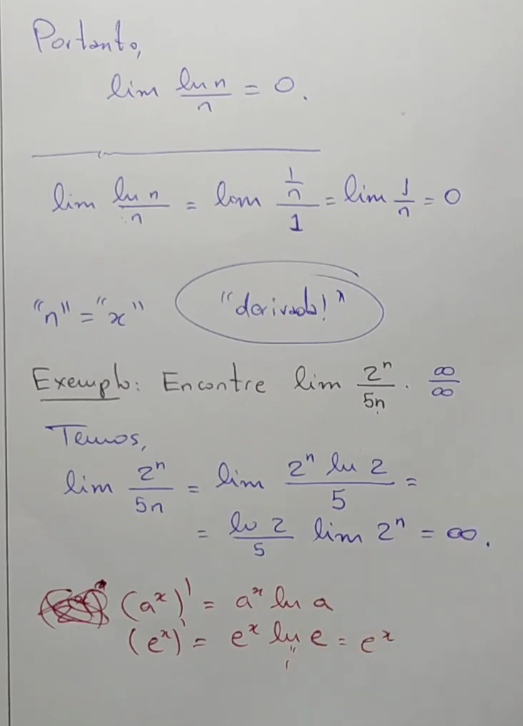 Portanto,
lim ln n / n = 0.
lim ln n / n = lim (1/n) / 1 = lim 1/n = 0
"n" = "x" "derivada!"
Exemplo: Encontre lim 2ⁿ / 5n . ∞/∞
Temos,
lim 2ⁿ / 5n = lim 2ⁿ ln 2 / 5 =
= ln 2 / 5 lim 2ⁿ = ∞.
(aˣ)' = aˣ ln a
(eˣ)' = eˣ ln e = eˣ